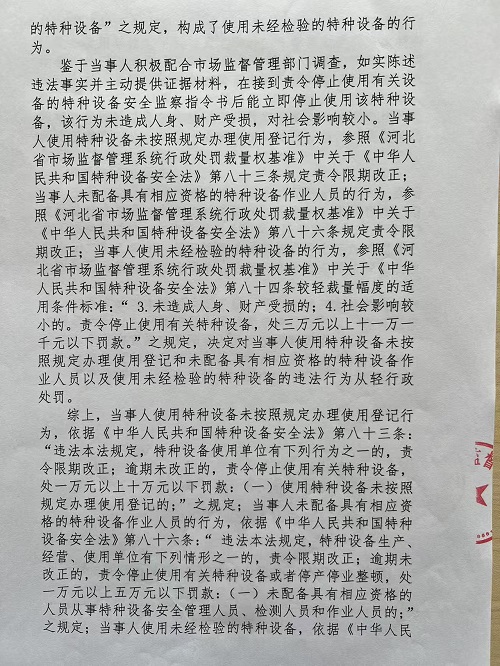 的特种设备”之规定，构成了使用未经检验的特种设备的行
为。
鉴于当事人积极配合市场监督管理部门调查，如实陈述
违法事实并主动提供证据材料，在接到责令停止使用有关设
备的特种设备安全监察指令书后能立即停止使用该特种设
备，该行为未造成人身、财产受损，对社会影响较小。当事
人使用特种设备未按照规定办理使用登记行为，参照《河北
省市场监督管理系统行政处罚裁量权基准》中关于《中华人
民共和国特种设备安全法》第八十三条规定责令限期改正；
当事人未配备具有相应资格的特种设备作业人员的行为，参
照《河北省市场监督管理系统行政处罚裁量权基准》中关于
《中华人民共和国特种设备安全法》第八十六条规定责令限
期改正；当事人使用未经检验的特种设备的行为，参照《河
北省市场监督管理系统行政处罚裁量权基准》中关于《中华
人民共和国特种设备安全法》第八十四条较轻裁量幅度的适
用条件标准：“ 3.未造成人身、财产受损的；4.社会影响较
小的。责令停止使用有关特种设备，处三万元以上十一万一
千元以下罚款。”之规定，决定对当事人使用特种设备未按
照规定办理使用登记和未配备具有相应资格的特种设备作
业人员以及使用未经检验的特种设备的违法行为从轻行政
处罚。
综上，当事人使用特种设备未按照规定办理使用登记行
为，依据《中华人民共和国特种设备安全法》第八十三条：
“违法本法规定，特种设备使用单位有下列行为之一的，责
令限期改正；逾期未改正的，责令停止使用有关特种设备，
处一万元以上十万元以下罚款：（一）使用特种设备未按照
规定办理使用登记的；”之规定；当事人未配备具有相应资
格的特种设备作业人员的行为，依据《中华人民共和国特种
设备安全法》第八十六条：“ 违法本法规定，特种设备生产、
经营、使用单位有下列情形之一的，责令限期改正；逾期未
改正的，责令停止使用有关特种设备或者停产停业整顿，处
一万元以上五万元以下罚款：（一）未配备具有相应资格的
人员从事特种设备安全管理人员、检测人员和作业人员的；”
之规定；当事人使用未经检验的特种设备，依据《中华人民